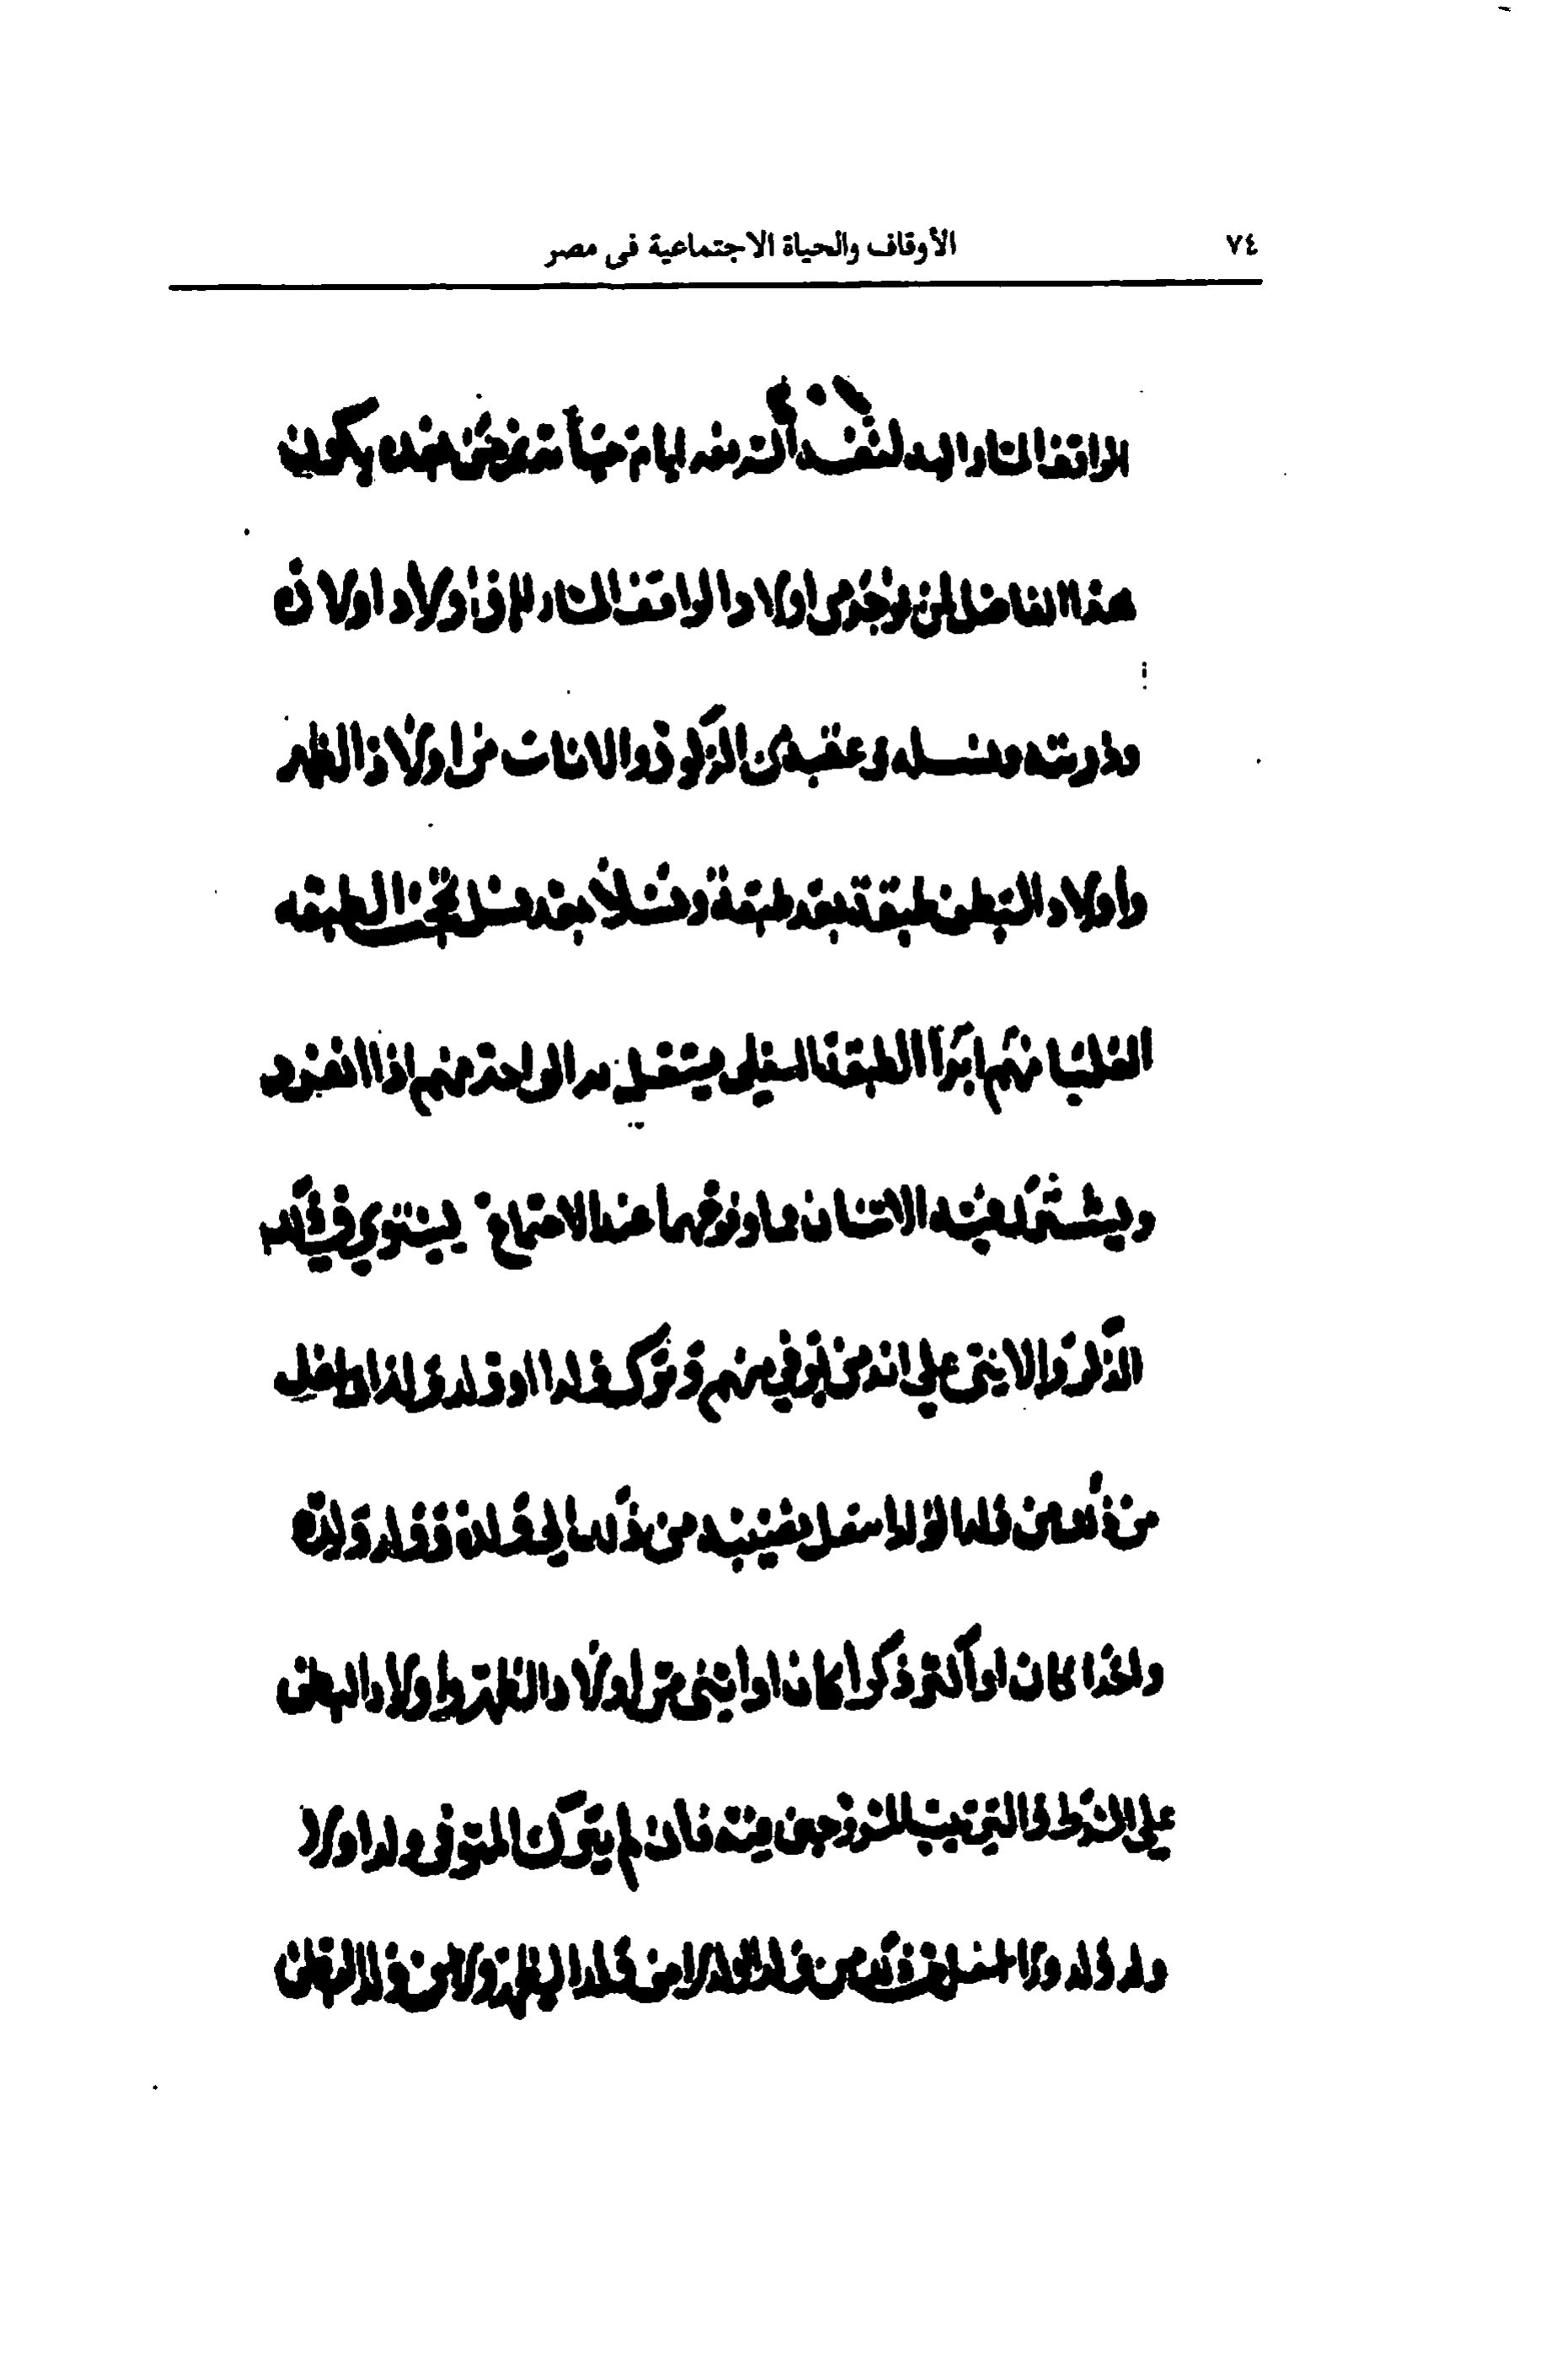 ٧٤
الأوقاف والحياة الاجتماعية فى مصر
الواقف المشار اليه لنفسه أن
هذا الفاضل لمن يوجد من اولاد الواقف المشار اليه واولاد اولاده
وذريته ونسله وعقبه من الذكور والاناث من اولاد الظهر
واولاد البطن طبقة بعد طبقة ونسلا بعد نسل تحجب الطبقة
العليا منهم ابدا الطبقة السفلى يستقل به الواحد منهم اذا انفرد
ويشترك فيه الاثنان فما فوقهما عند الاجتماع يستوي في ذلك
الذكر والانثى على انه من توفي منهم وترك ولدا او ولد ولد او اسفل
من ذلك من ولد الولد انتقل نصيبه من ذلك الى ولده وولد ولده
واحدا كان او أكثر ذكرا كان او انثى من اولاد الظهر واولاد البطن
على الشرط والترتيب المشروحين فيه فان لم يكن للمتوفى ولد ولا
ولد ولد ولا اسفل من ذلك من ولد الولد لا من ولد الظهر ولا من ولد البطن